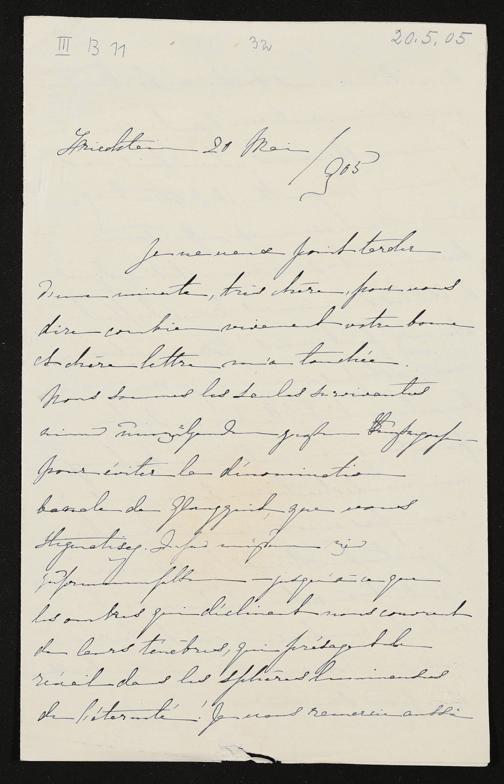 III B 11 32 20.5.05
20 Mai /905
Je ne veux point tarder
d'une minute, très chère, pour vous
dire combien vivement votre bonne
et chère lettre m'a touchée.
Nous sommes les seules survivantes
pour éviter la dénomination
banale de que vous
stigmatisez.
jusqu'à ce que
les ombres qui déclinent nous couvrent
de leurs ténèbres, qui présagent le
réveil dans les sphères lumineuses
de l'éternité! Je vous remercie aussi